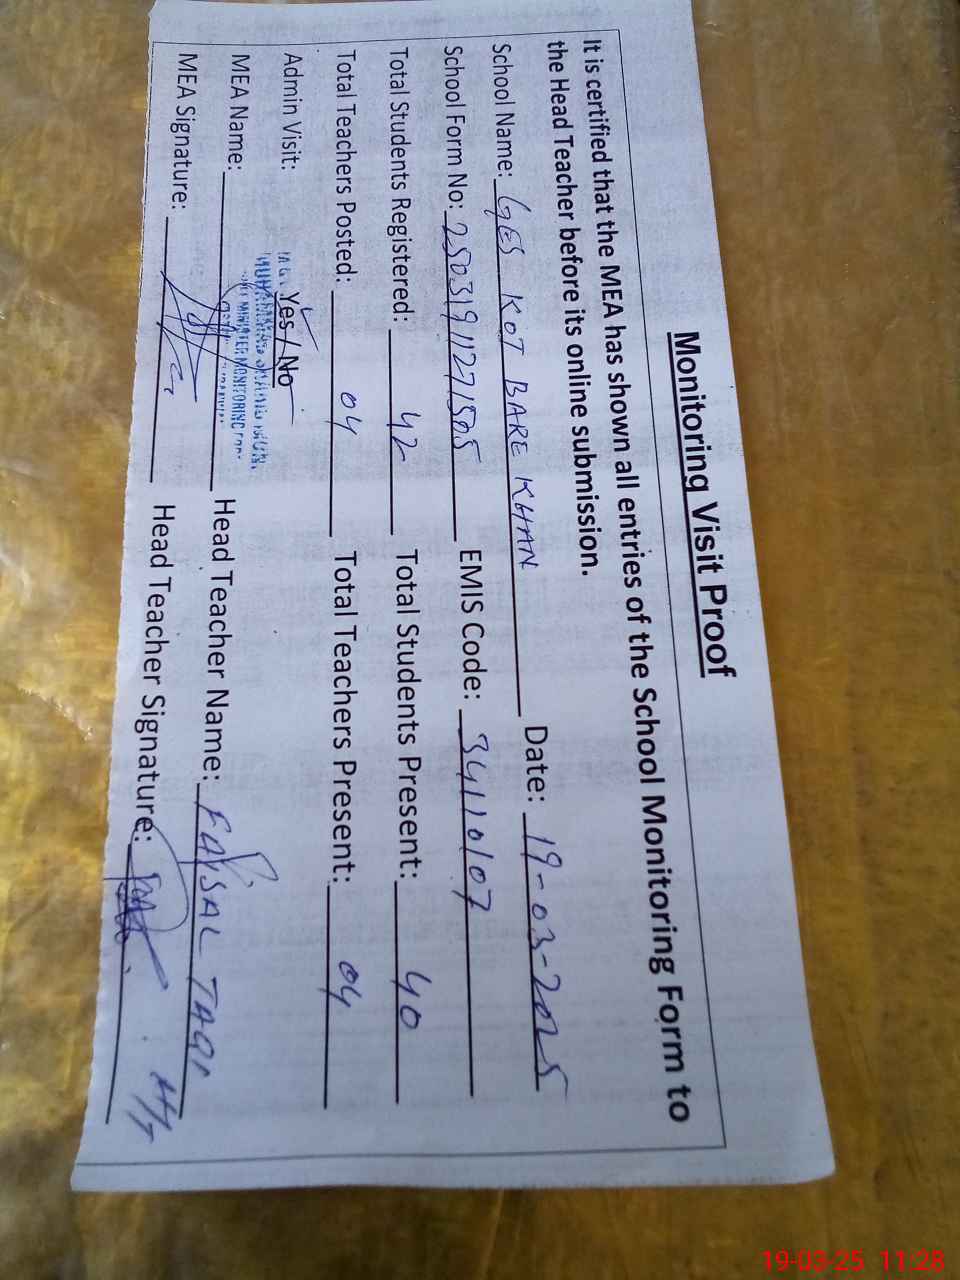 Monitoring Visit Proof
It is certified that the MEA has shown all entries of the School Monitoring Form to
the Head Teacher before its online submission.
School Name: GES KOT BARE KHAN Date: 19-03-2025
School Form No: 25031911271505 EMIS Code: 34110107
Total Students Registered: 42 Total Students Present: 40
Total Teachers Posted: 04 Total Teachers Present: 04
Admin Visit: Yes / No
MEA Name: Head Teacher Name: FAYSAL TAQI
MEA Signature: Head Teacher Signature:
MONITORING
19-03-25 11:28